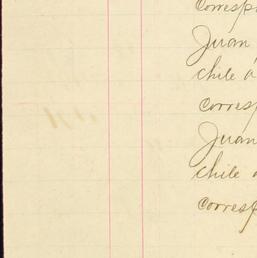 Corresp
Juan
chile a
corresp
Juan
chile a
corresp